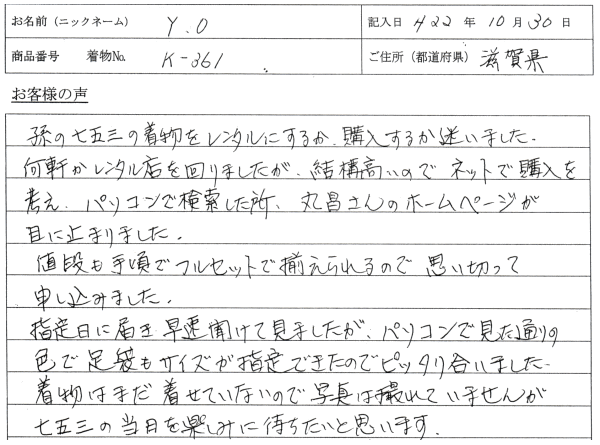 お名前（ニックネーム） Y.O 記入日 H22 年 10 月 30 日
商品番号 着物No. K-361 ご住所（都道府県） 滋賀県
お客様の声
孫の七五三の着物をレンタルにするか、購入するか迷いました。
何軒かレンタル店を回りましたが、結構高いのでネットで購入を
考え、パソコンで検索した所、丸昌さんのホームページが
目に止まりました。
値段も手頃でフルセットで揃えられるので思い切って
申し込みました。
指定日に届き早速開けて見ましたが、パソコンで見た通りの
色で足袋もサイズが指定できたのでピッタリ合いました。
着物はまだ着せていないので写真は撮れていませんが
七五三の当日を楽しみに待ちたいと思います。